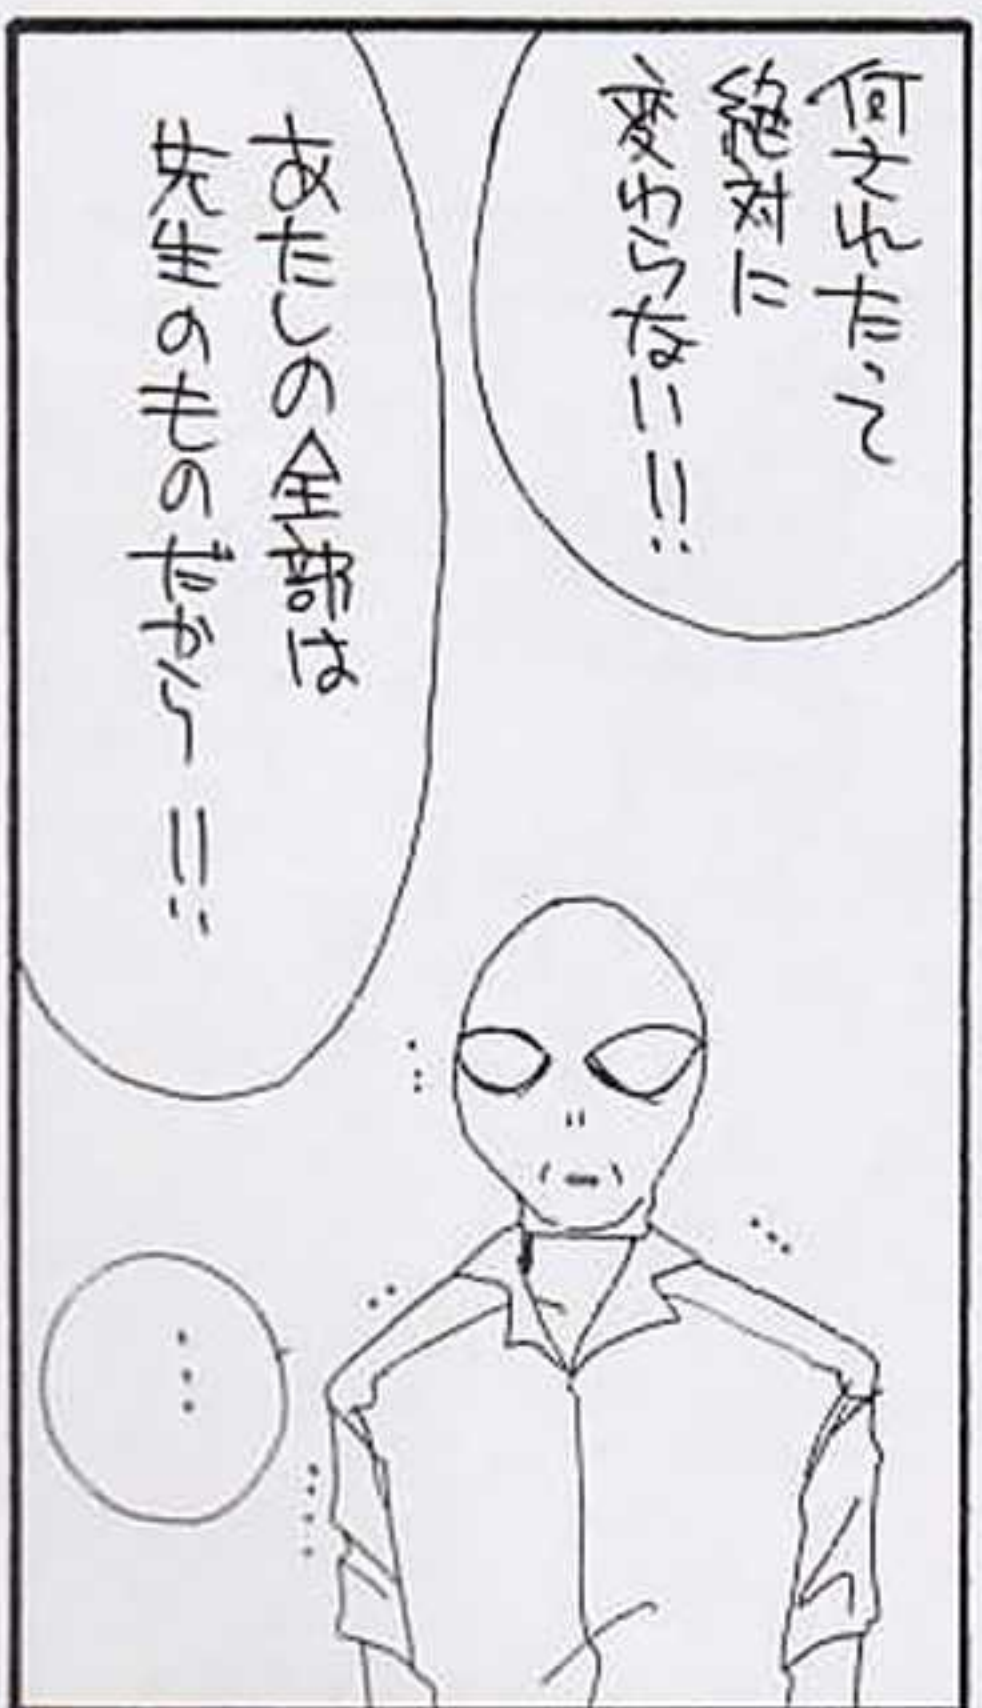 何されたって
絶対に
変わらない!!
あたしの全部は
先生のものだから!!
…